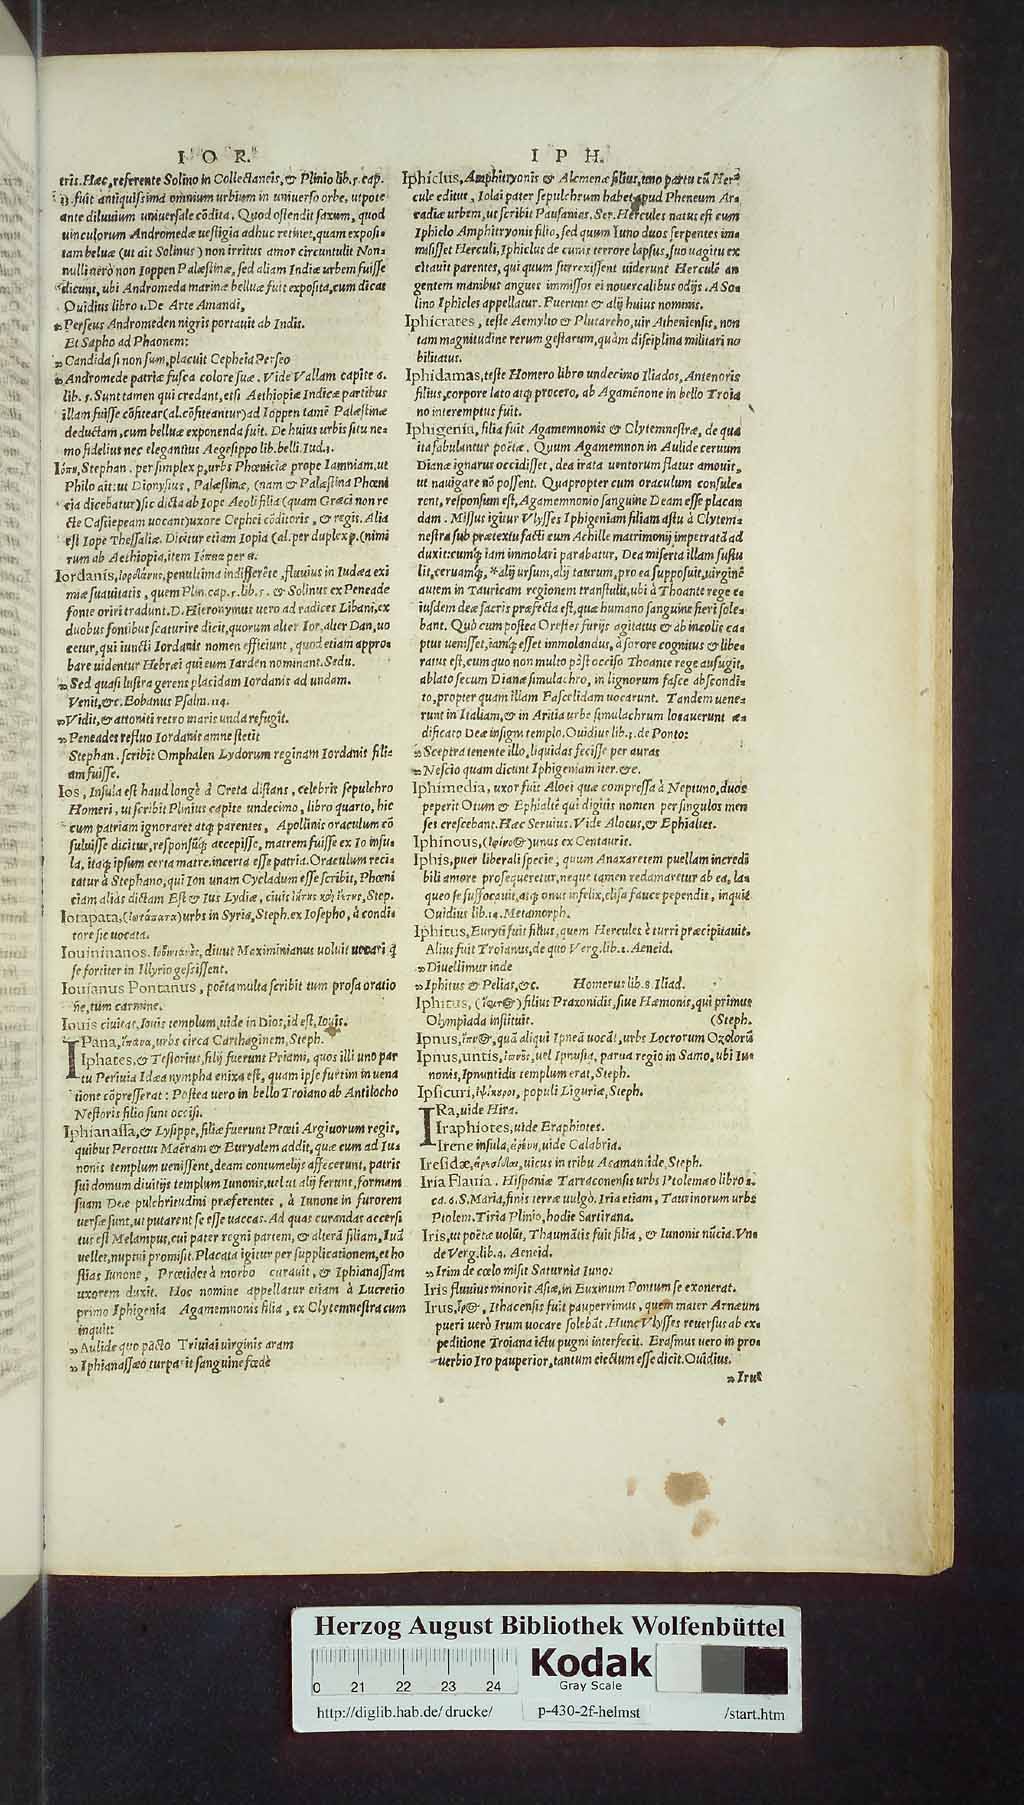 I O R.
tris. Hæc, referente Solino in Collectaneis, & Plinio lib. 5. cap.
13. fuit antiquißima omnium urbium in universo orbe, utpote
ante diluuium uniuersale cōdita. Quod ostendit saxum, quod
uinculorum Andromedæ uestigia adhuc retinet, quam exposi-
tam beluæ (ut ait Solinus) non irritus amor circuntulit Non-
nulli uerò non Ioppen Palæstinæ, sed aliam Indiæ urbem fuisse
dicunt, ubi Andromeda marinæ belluæ fuit exposita, cum dicat
Ouidius libro 1. De Arte Amandi,
„ Perseus Andromeden nigris portauit ab Indis.
Et Sapho ad Phaonem:
„ Candida si non sum, placuit Cepheia Perseo
„ Andromede patriæ fusca colore suæ. Vide Vallam capite 6.
lib. 5. Sunt tamen qui credant, etsi Aethiopiæ Indicæ partibus
illam fuisse cōfitear (al. cōfiteantur) ad Ioppen tamē Palæstinæ
deductam, cum belluæ exponenda fuit. De huius urbis situ ne-
mo fidelius nec elegantius Aegesippo lib. belli. Iud. 3.
Ἰόπη, Stephan. per simplex p, urbs Phœniciæ prope Iamniam, ut
Philo ait: ut Dionysius, Palæstinæ, (nam & Palæstina Phœni
cia dicebatur) sic dicta ab Iope Aeoli filia (quam Græci non re
cte Caßiepeam uocant) uxore Cephei cōditoris, & regis. Alia
est Iope Thessaliæ. Dicitur etiam Iopia (al. per duplex p. (nimi
rum ab Aethiopia, item Ἰόππα per α.
Iordanis, ἰορδάνης, penultima indifferēte, fluuius in Iudæa exi
miæ suauitatis, quem Plin. cap. 5. lib. 5. & Solinus ex Peneade
fonte oriri tradunt. D. Hieronymus uero ad radices Libani, ex
duobus fontibus scaturire dicit, quorum alter Ior, alter Dan, uo
cetur, qui iuncti Iordanis nomen efficiunt, quod etiam appro-
bare uidentur Hebræi qui eum Iarden nominant. Sedu.
„ Sed quasi lustra gerens placidam Iordanis ad undam.
Venit, &c. Eobanus Psalm. 114.
„ Vidit, & attoniti retro maris unda refugit.
„ Peneades refluo Iordanis amne stetit
Stephan. scribit Omphalen Lydorum reginam Iordanis filiæ
am fuisse.
Ios, Insula est haud longè à Creta distans, celebris sepulchro
Homeri, ut scribit Plinius capite undecimo, libro quarto, hic
cum patriam ignoraret atq; parentes, Apollinis oraculum cō
suluisse dicitur, responsūq; accepisse, matrem fuisse ex Io insu-
la, itaq; ipsum certa matre. incerta esse patria. Oraculum reci-
tatur à Stephano, qui Ion unam Cycladum esse scribit, Phœni
ciam aliàs dictam Est & Ius Lydiæ, ciuis ἰήτης καὶ ἰέτης, Step.
Iotapata, (ἰωτάπατα) urbs in Syria, Steph. ex Iosepho, à condi-
tore sic uocata.
Iouininanos. diuut Maximinianus uoluit uocari q̃
se fortiter in Illyrio gesissent.
Iouianus Pontanus, poëta multa scribit tum prosa oratio
ñe, tum carmine.
Iouis ciuitas, Iouis templum, uide in Dios, id est, Iouis.
IPana, ἴπανα, urbs circa Carthaginem, Steph.
Iphates, & Testorius, filij fuerunt Priami, quos illi uno par
tu Periuia Idæa nympha enixa est, quam ipse furtim in uena
tione cōpresserat: Postea uero in bello Troiano ab Antilocho
Nestoris filio sunt occisi.
Iphianassa, & Lysippe, filiæ fuerunt Prœti Argiuorum regis,
quibus Perottus Maēram & Euryalem addit, quæ cum ad Iu-
nonis templum uenissent, deam contumelijs affecerunt, patris
sui domum diuitijs templum Iunonis, uel ut alij ferunt, formam
suam Deæ pulchritudini præferentes, à Iunone in furorem
uersæ sunt, ut putarent se esse uaccas. Ad quas curandas accersi
tus est Melampus, cui pater regni partem, & alterā filiam, Iuā
uellet, nuptui promisit. Placata igitur per supplicationem, et ho
stias Iunone, Prœtides à morbo curauit, & Iphianassam
uxorem duxit. Hoc nomine appellatur etiam à Lucretio
primo Iphigenia Agamemnonis filia, ex Clytemnestra cum
inquit:
„ Aulide quo pācto Triuiai uirginis aram
„ Iphianassæo turparūt sanguine fœdè
I P H.
Iphiclus, Amphitryonis & Alcmenæ filius, uno partu cū Her-
cule editur, Iolai pater sepulchrum habet apud Pheneum Ar-
cadiæ urbem, ut scribit Pausanias. Ser. Hercules natus est cum
Iphiclo Amphitryonis filio, sed quum Iuno duos serpentes im-
misisset Herculi, Iphiclus de cunis terrore lapsus, suo uagitu ex
citauit parentes, qui quum surrexissent uiderunt Herculē an
gentem manibus angues immissos ei nouercalibus odijs. A So-
lino Iphicles appellatur. Fuerunt & alij huius nominis.
Iphicrates, teste Aemylio & Plutarcho, uir Atheniensis, non
tam magnitudine rerum gestarum, quàm disciplina militari no
bilitatus.
Iphidamas, teste Homero libro undecimo Iliados, Antenoris
filius, corpore lato atq; procero, ab Agamēnone in bello Troia
no interemptus fuit.
Iphigenia, filia fuit Agamemnonis & Clytemnestræ, de qua
ita fabulantur poëtæ. Quum Agamemnon in Aulide ceruum
Dianæ ignarus occidisset, dea irata uentorum flatus amouit,
ut nauigare nō possent. Quapropter cum oraculum consule-
rent, responsum est, Agamemnonio sanguine Deam esse placan
dam. Missus igitur Vlysses Iphigeniam filiam astu à Clytem-
nestra sub prætextu facti cum Achille matrimonij impetratā ad
duxit: cumq; iam immolari parabatur, Dea miserta illam sustu
lit, ceruamq;, *alij ursum, alij taurum, pro ea supposuit, uirginē
autem in Tauricam regionem transtulit, ubi à Thoante rege e-
iusdem deæ sacris præfecta est, quæ humano sanguine fieri sole-
bant. Quò cum postea Orestes furijs agitatus & ab incolis ca-
ptus uenisset, iamq; esset immolandus, à sorore cognitus & libe-
ratus est, cum quo non multo pòst occiso Thoante rege aufugit,
ablato secum Dianæ simulachro, in lignorum fasce abscondi-
to, propter quam illam Fascelidam uocarunt. Tandem uene-
runt in Italiam, & in Aritia urbe simulachrum locauerunt æ-
dificato Deæ insigni templo. Ouidius lib. 3. de Ponto:
„ Sceptra tenente illo, liquidas fecisse per auras
„ Nescio quam dicunt Iphigeniam iter. &c.
Iphimedia, uxor fuit Aloei quæ compressa à Neptuno, duos
peperit Otum & Ephialtē qui digitis nouem per singulos men
ses crescebant. Hæc Seruius. Vide Alocus, & Ephialtes.
Iphinous, unus ex Centauris.
Iphis, puer liberali specie, quum Anaxaretem puellam incredi
bili amore prosequeretur, neque tamen redamaretur ab ea, la-
queo se suffocauit, atq; onus infelix, elisa fauce pependit, inquit
Ouidius lib. 14. Metamorph.
Iphitus, Euryti fuit filius, quem Hercules è turri præcipitauit.
Alius fuit Troianus, de quo Verg. lib. 2. Aeneid.
„ Diuellimur inde
„ Iphitus & Pelias, &c. Homerus lib. 8. Iliad.
Iphitus, filius Praxonidis, siue Hæmonis, qui primus
Olympiada instituit. (Steph.
Ipnus, quā aliqui Ipneā uocāt, urbs Locrorum Ozolorū
Ipnus, untis, ἰπνοῦς, uel Ipnusia, parua regio in Samo, ubi Iu-
nonis, Ipnuntidis templum erat, Steph.
Ipsicuri, ἰψίκουροι, populi Liguriæ, Steph.
IRa, uide Hira.
Iraphiotes, uide Eraphiotes.
Irene insula, εἰρήνη, uide Calabria.
Iresidæ, εἰρεσίδαι, uicus in tribu Acamantide, Steph.
Iria Flauia. Hispaniæ Tarraconensis urbs Ptolemæo libro 2.
ca. 6. S. Maria, finis terræ uulgò. Iria etiam, Taurinorum urbs
Ptolem. Tiria Plinio, hodie Sartirana.
Iris, ut poëtæ uolūt, Thaumātis fuit filia, & Iunonis nūcia. Vn-
de Verg. lib. 9. Aeneid.
„ Irim de cœlo misit Saturnia Iuno:
Iris fluuius minoris Asiæ, in Euxinum Pontum se exonerat.
Irus, Ithacensis fuit pauperrimus, quem mater Arnæum
pueri uerò Irum uocare solebāt. Hunc Vlysses reuersus ab ex-
peditione Troiana ictu pugni interfecit. Erasmus uero in pro-
uerbio Iro pauperior, tantum eiectum esse dicit. Ouidius.
„ Irus
Herzog August Bibliothek Wolfenbüttel
Kodak
Gray Scale
0 21 22 23 24
http://diglib.hab.de/drucke/ p-430-2f-helmst /start.htm